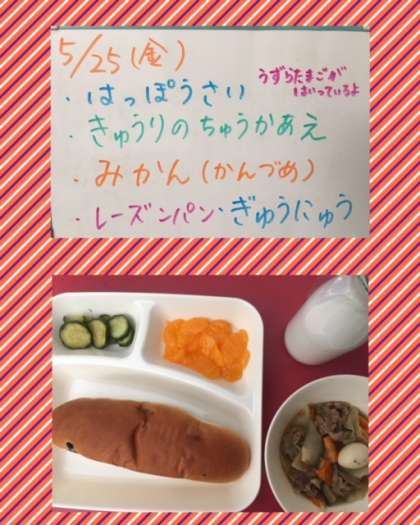 5/25(金)
・はっぽうさい
うずらたまごが
はいっているよ
・きゅうりのちゅうかあえ
・みかん(かんづめ)
・レーズンパン・ぎゅうにゅう